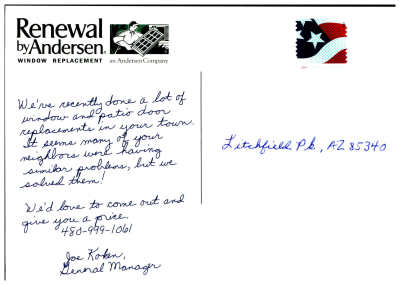 Renewal
by Andersen.
WINDOW REPLACEMENT an Andersen Company
We've recently done a lot of
window and patio door
replacements in your town.
It seems many of your
neighbors were having
similar problems, but we
solved them!
We'd love to come out and
give you a price.
480-999-1061
Joe
General Manager
Litchfield Pk., AZ 85340